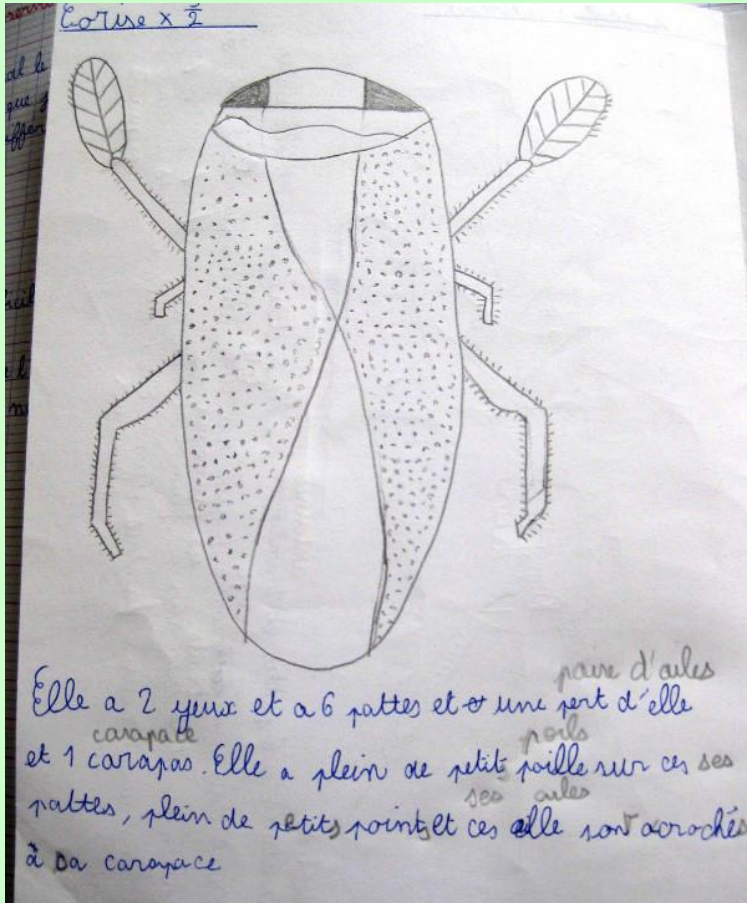 Corise x 5/2
paire d'ailes
Elle a 2 yeux et a 6 pattes et une pert d'elle
carapace poils
et 1 carapas. Elle a plein de petit poille sur ces ses
ses ailes
pattes, plein de petits points et ces elle sont acrochés
à sa carapace